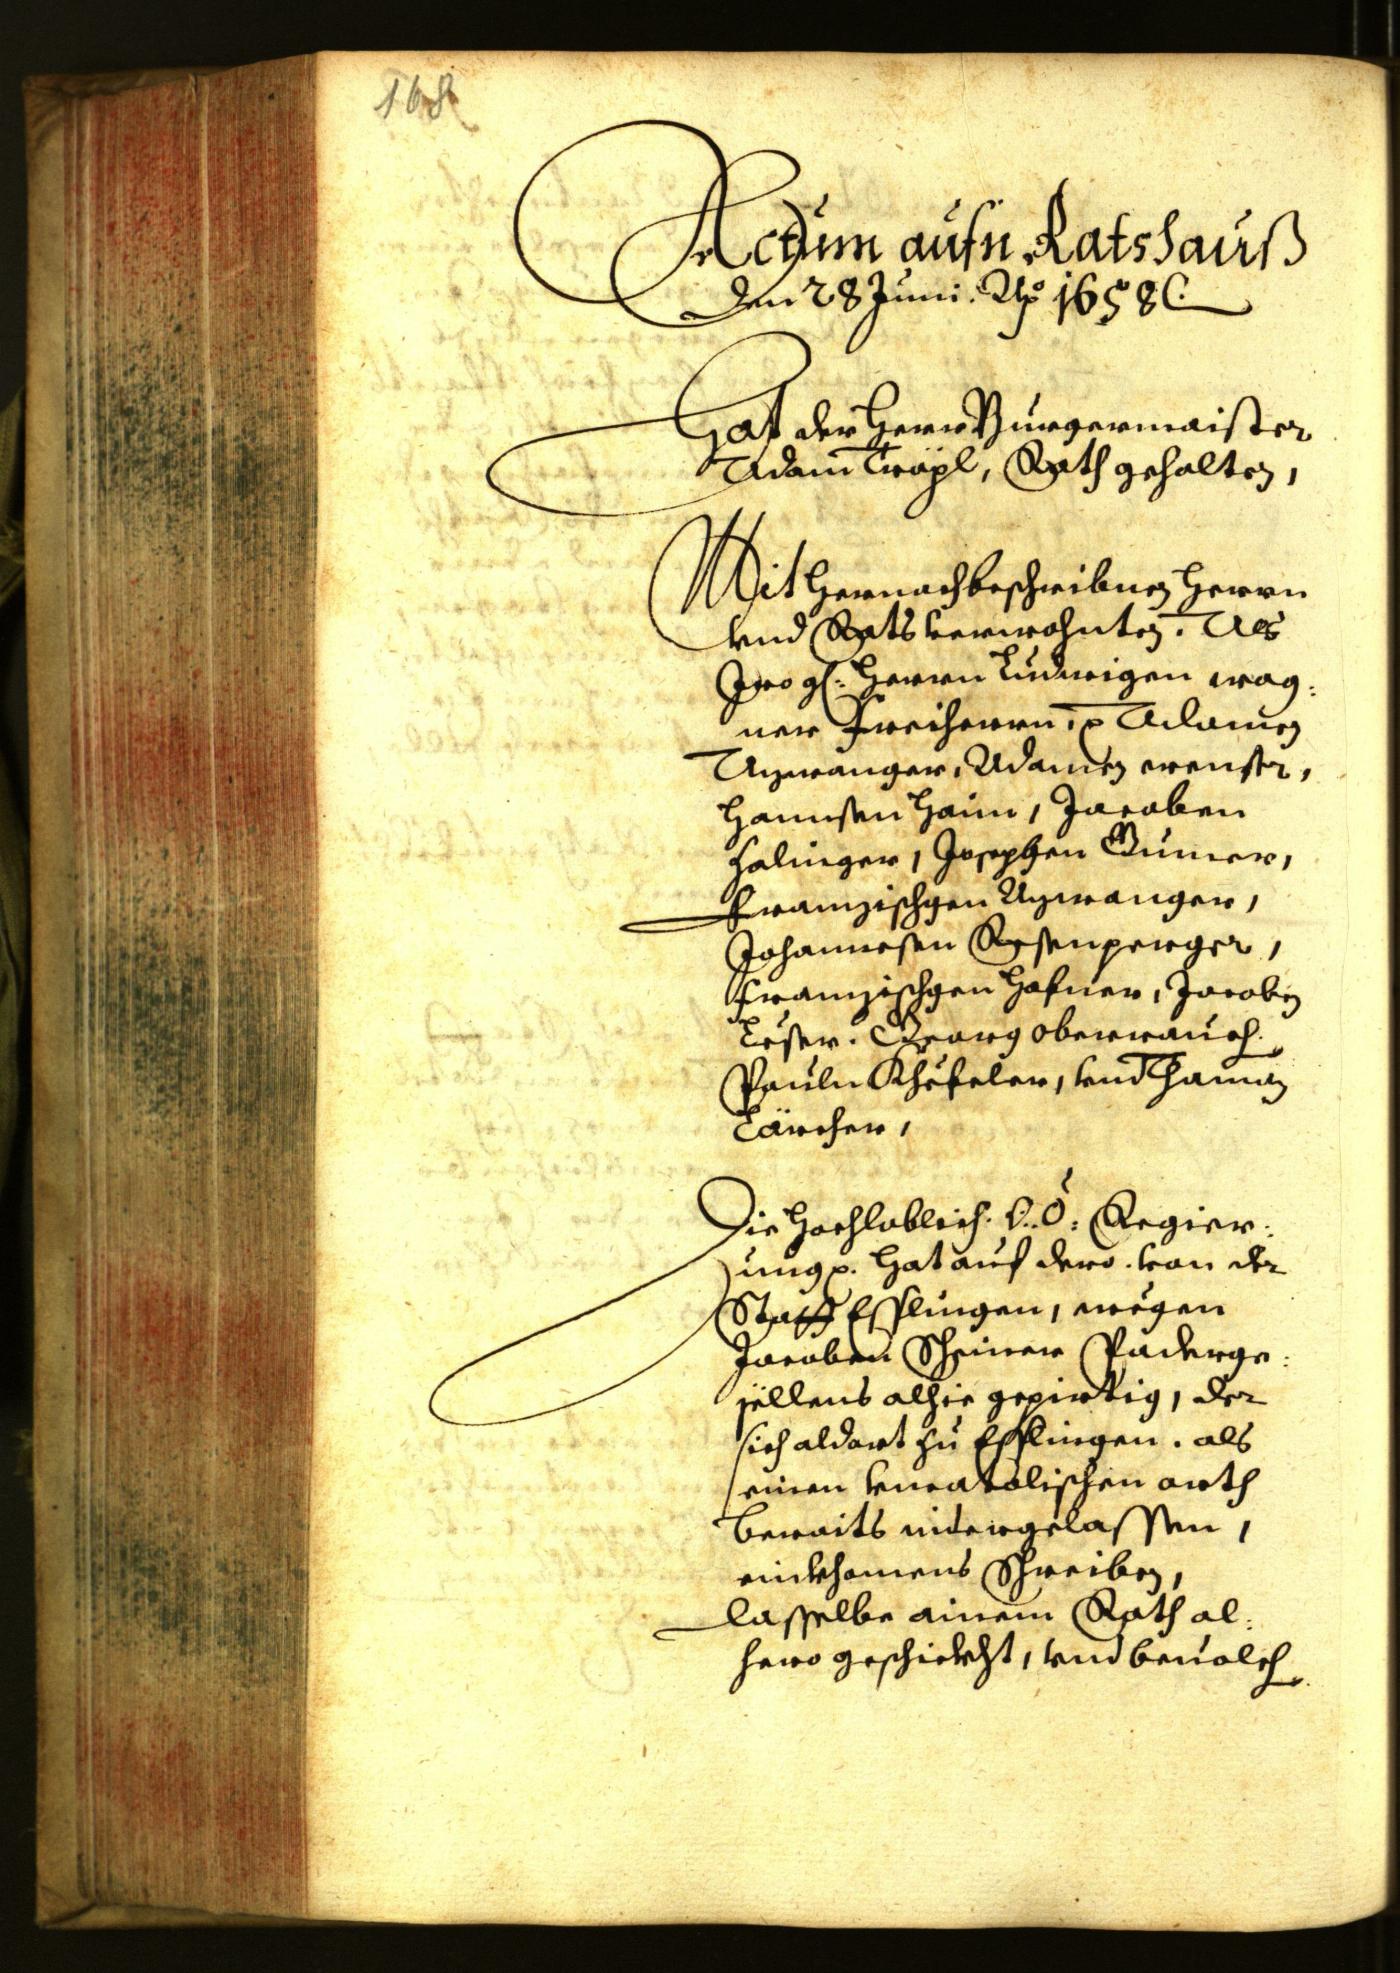 168
Actum aufn Ratshauß
den 28 Juni: Ao 1658
Hat der Herr Burgermaister
Adam Träpl, Rath gehalten,
Mit hernachbeschribnen Herrn
vnd Rats verwohnten. Als
Iro gl: Herrn Ludwigen wag:
ner Freiherrn, Adamen
Azwanger, Adamen
Hannsen Haim, Jacoben
Halinger, Josephen Gumer,
Franzischgen Azwanger,
Johannesen Rosenperger,
Franzischgen Hafner, Jacoben
Leser. Georg Oberrauch.
Pauln Khüfeler, vnd Thaman
Lärcher,
Die Hochloblich. O: Ö: Regier:
ung. Hat auf dero. von der
Statt Esslingen, wegen
Jacoben Scheiner Paderge:
sellens alhie gepirtig, der
sich aldort zu Esslingen. als
einen vncatolischen orth
beraits nidergelassen,
einkhomens Schreiben,
dasselbe ainem Rath al:
hero geschickht, vnd beuolch